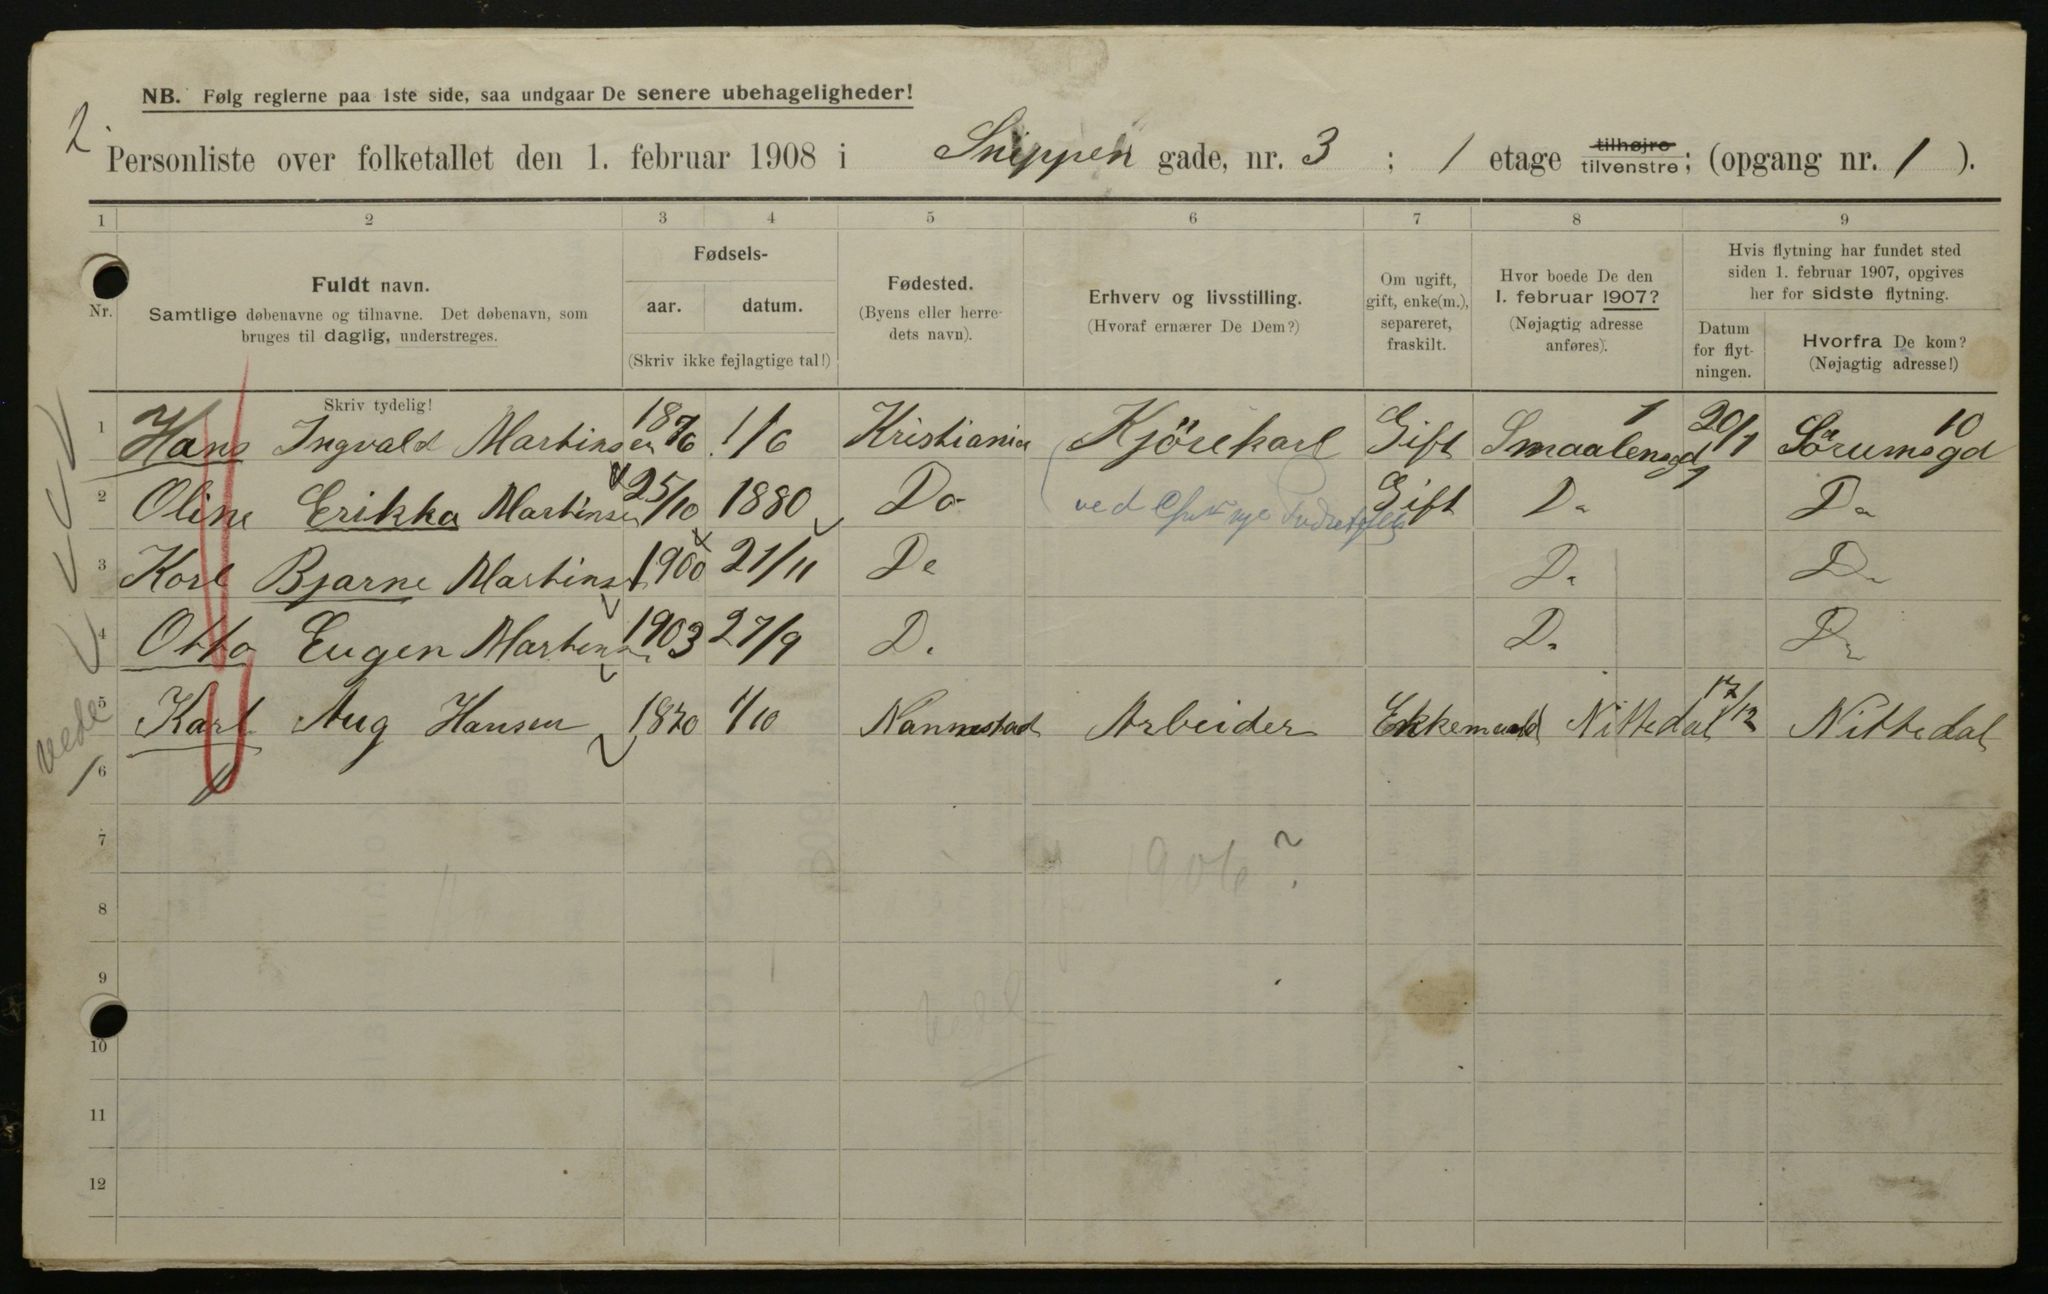 2.
NB. Følg reglerne paa 1ste side, saa undgaar De senere ubehageligheder!
Personliste over folketallet den 1. februar 1908 i Snippen gade, nr. 3 ; 1 etage tilhøjre tilvenstre; (opgang nr. 1 ).
1 2 3 4 5 6 7 8 9
Nr.
Fuldt navn.
Samtlige døbenavne og tilnavne. Det døbenavn, som
bruges til daglig, understreges.
Skriv tydelig!
Fødsels-
aar. datum.
(Skriv ikke fejlagtige tal!)
Fødested.
(Byens eller herre-
dets navn).
Erhverv og livsstilling.
(Hvoraf ernærer De Dem?)
Om ugift,
gift, enke(m.),
separeret,
fraskilt.
Hvor boede De den
1. februar 1907?
(Nøjagtig adresse
anføres).
Hvis flytning har fundet sted
siden 1. februar 1907, opgives
her for sidste flytning.
Datum
for flyt-
ningen.
Hvorfra De kom?
(Nøjagtig adresse!)
1 Hans Ingvald Martinsen 1876 1/6 Kristiania Kjörekarl Gift Smaalensgd 1 20/1 Sörumsgd 10
2 Oline Erikka Martinsen 25/10 1880 Do ved Gift Do Do
3 Karl Bjarne Martinsen 1900 21/11 Do Do Do
4 Otto Eugen Martinsen 1903 27/9 Do Do Do
5 Karl Aug Hansen 1870 1/10 Nannestad Arbeider Enkemand Nittedal 17/12 Nittedal
vede
6
7
1906?
8
9
10
11
12